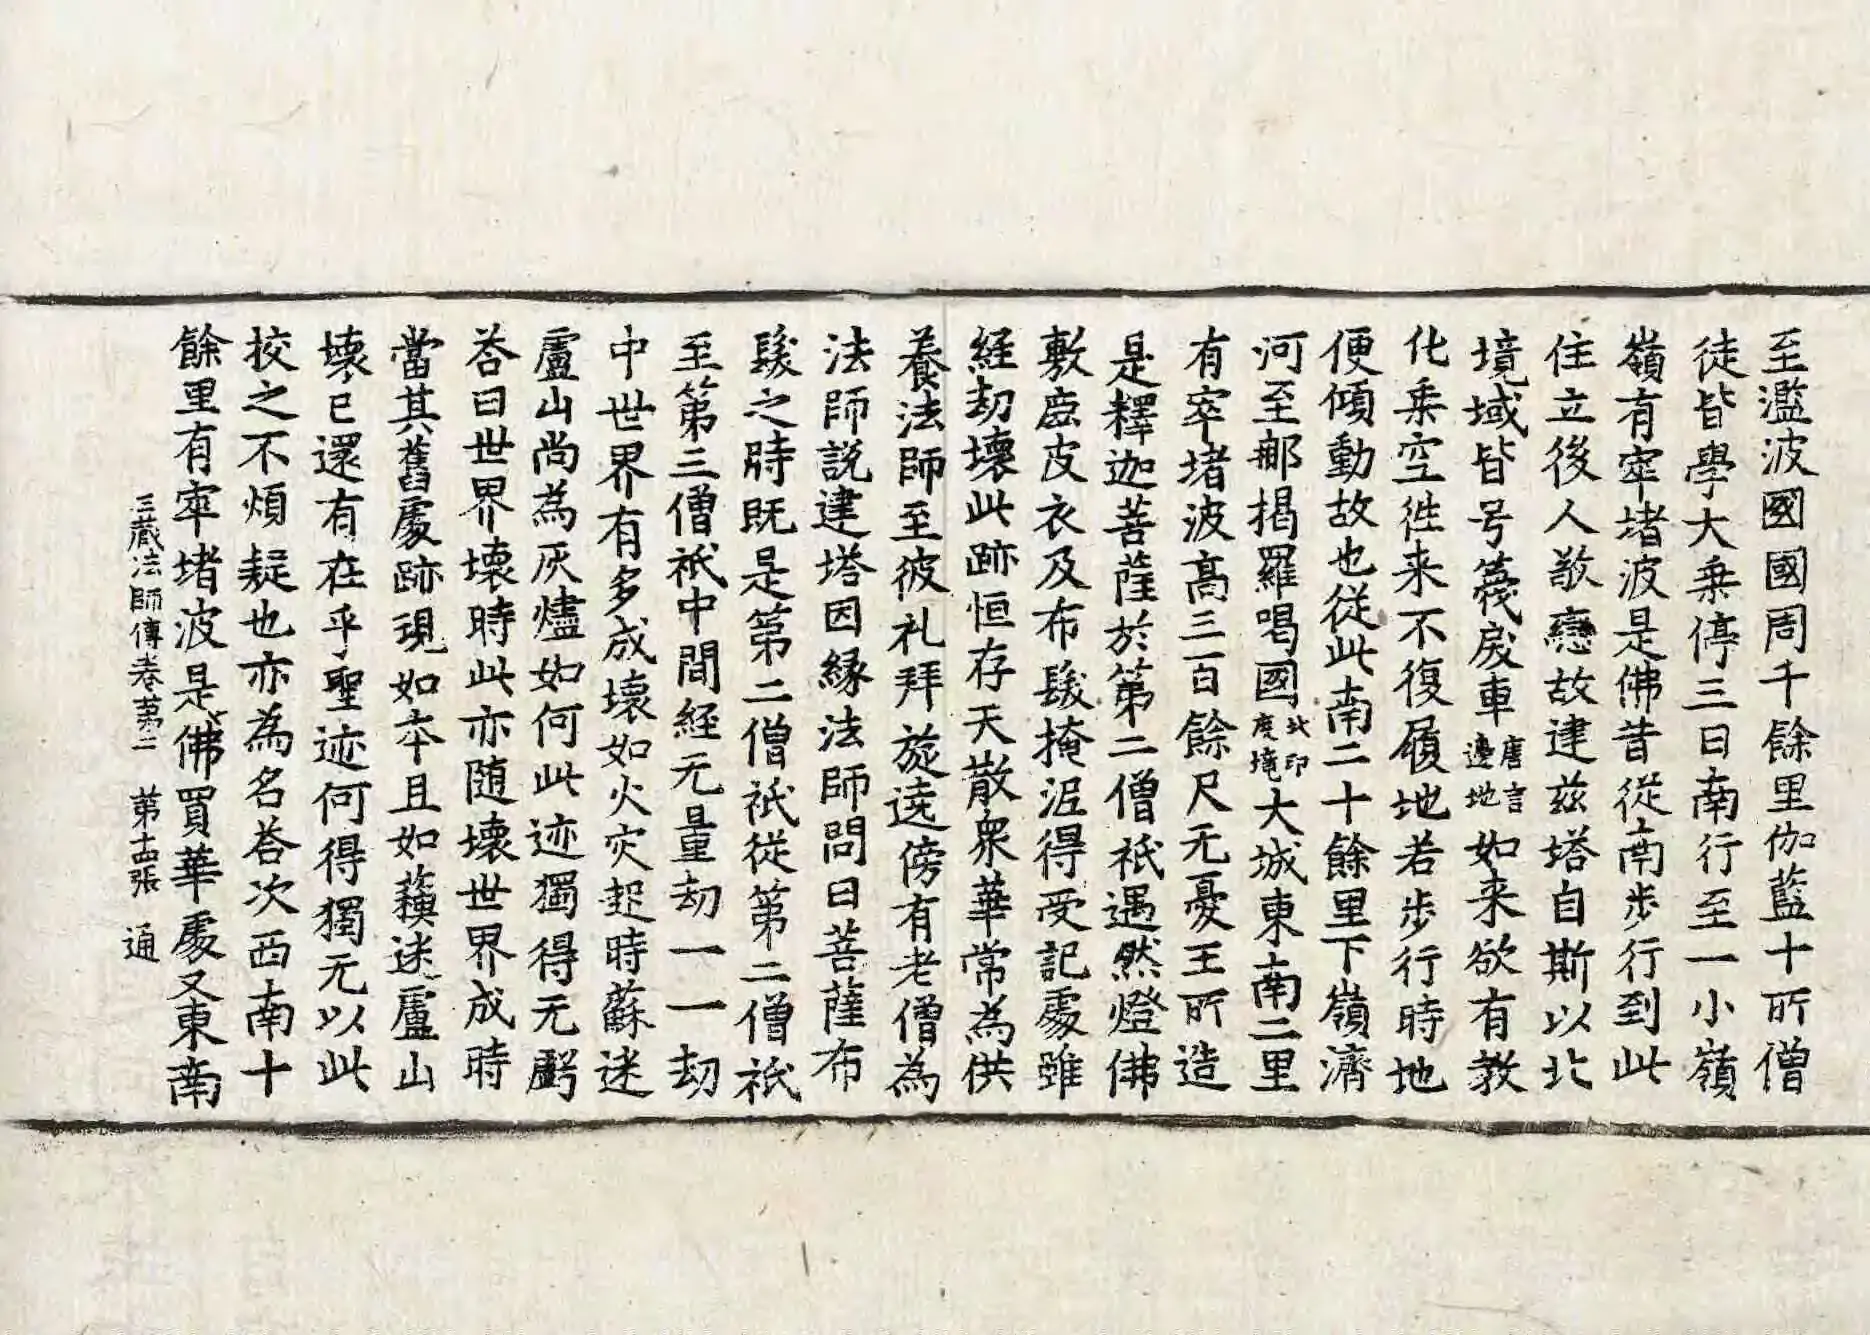 至濫波國國周千餘里伽藍十所僧
徒皆學大乘停三日南行至一小嶺
嶺有窣堵波是佛昔從南步行到此
住立後人敬戀故建茲塔自斯以北
境域皆号篾戾車唐言邊地如来欲有教
化乘空往来不復履地若步行時地
便傾動故也從此南二十餘里下嶺濟
河至那揭羅喝國北印度境大城東南二里
有窣堵波高三百餘尺无憂王所造
是釋迦菩薩於第二僧祇遇然燈佛
敷鹿皮衣及布髮掩泥得受記處雖
經劫壞此跡恒存天散衆華常為供
養法師至彼礼拜旋遶傍有老僧為
法師說建塔因緣法師問曰菩薩布
髮之時既是第二僧祇從第二僧祇
至第三僧祇中間經无量劫一一劫
中世界有多成壞如火灾起時蘇迷
盧山尚為灰燼如何此迹獨得无虧
荅曰世界壞時此亦随壞世界成時
當其舊處跡現如本且如蘓迷盧山
壞已還有在乎聖迹何得獨无以此
挍之不煩疑也亦為名荅次西南十
餘里有窣堵波是佛買華處又東南
三藏法師傳卷第二 第十四張 通